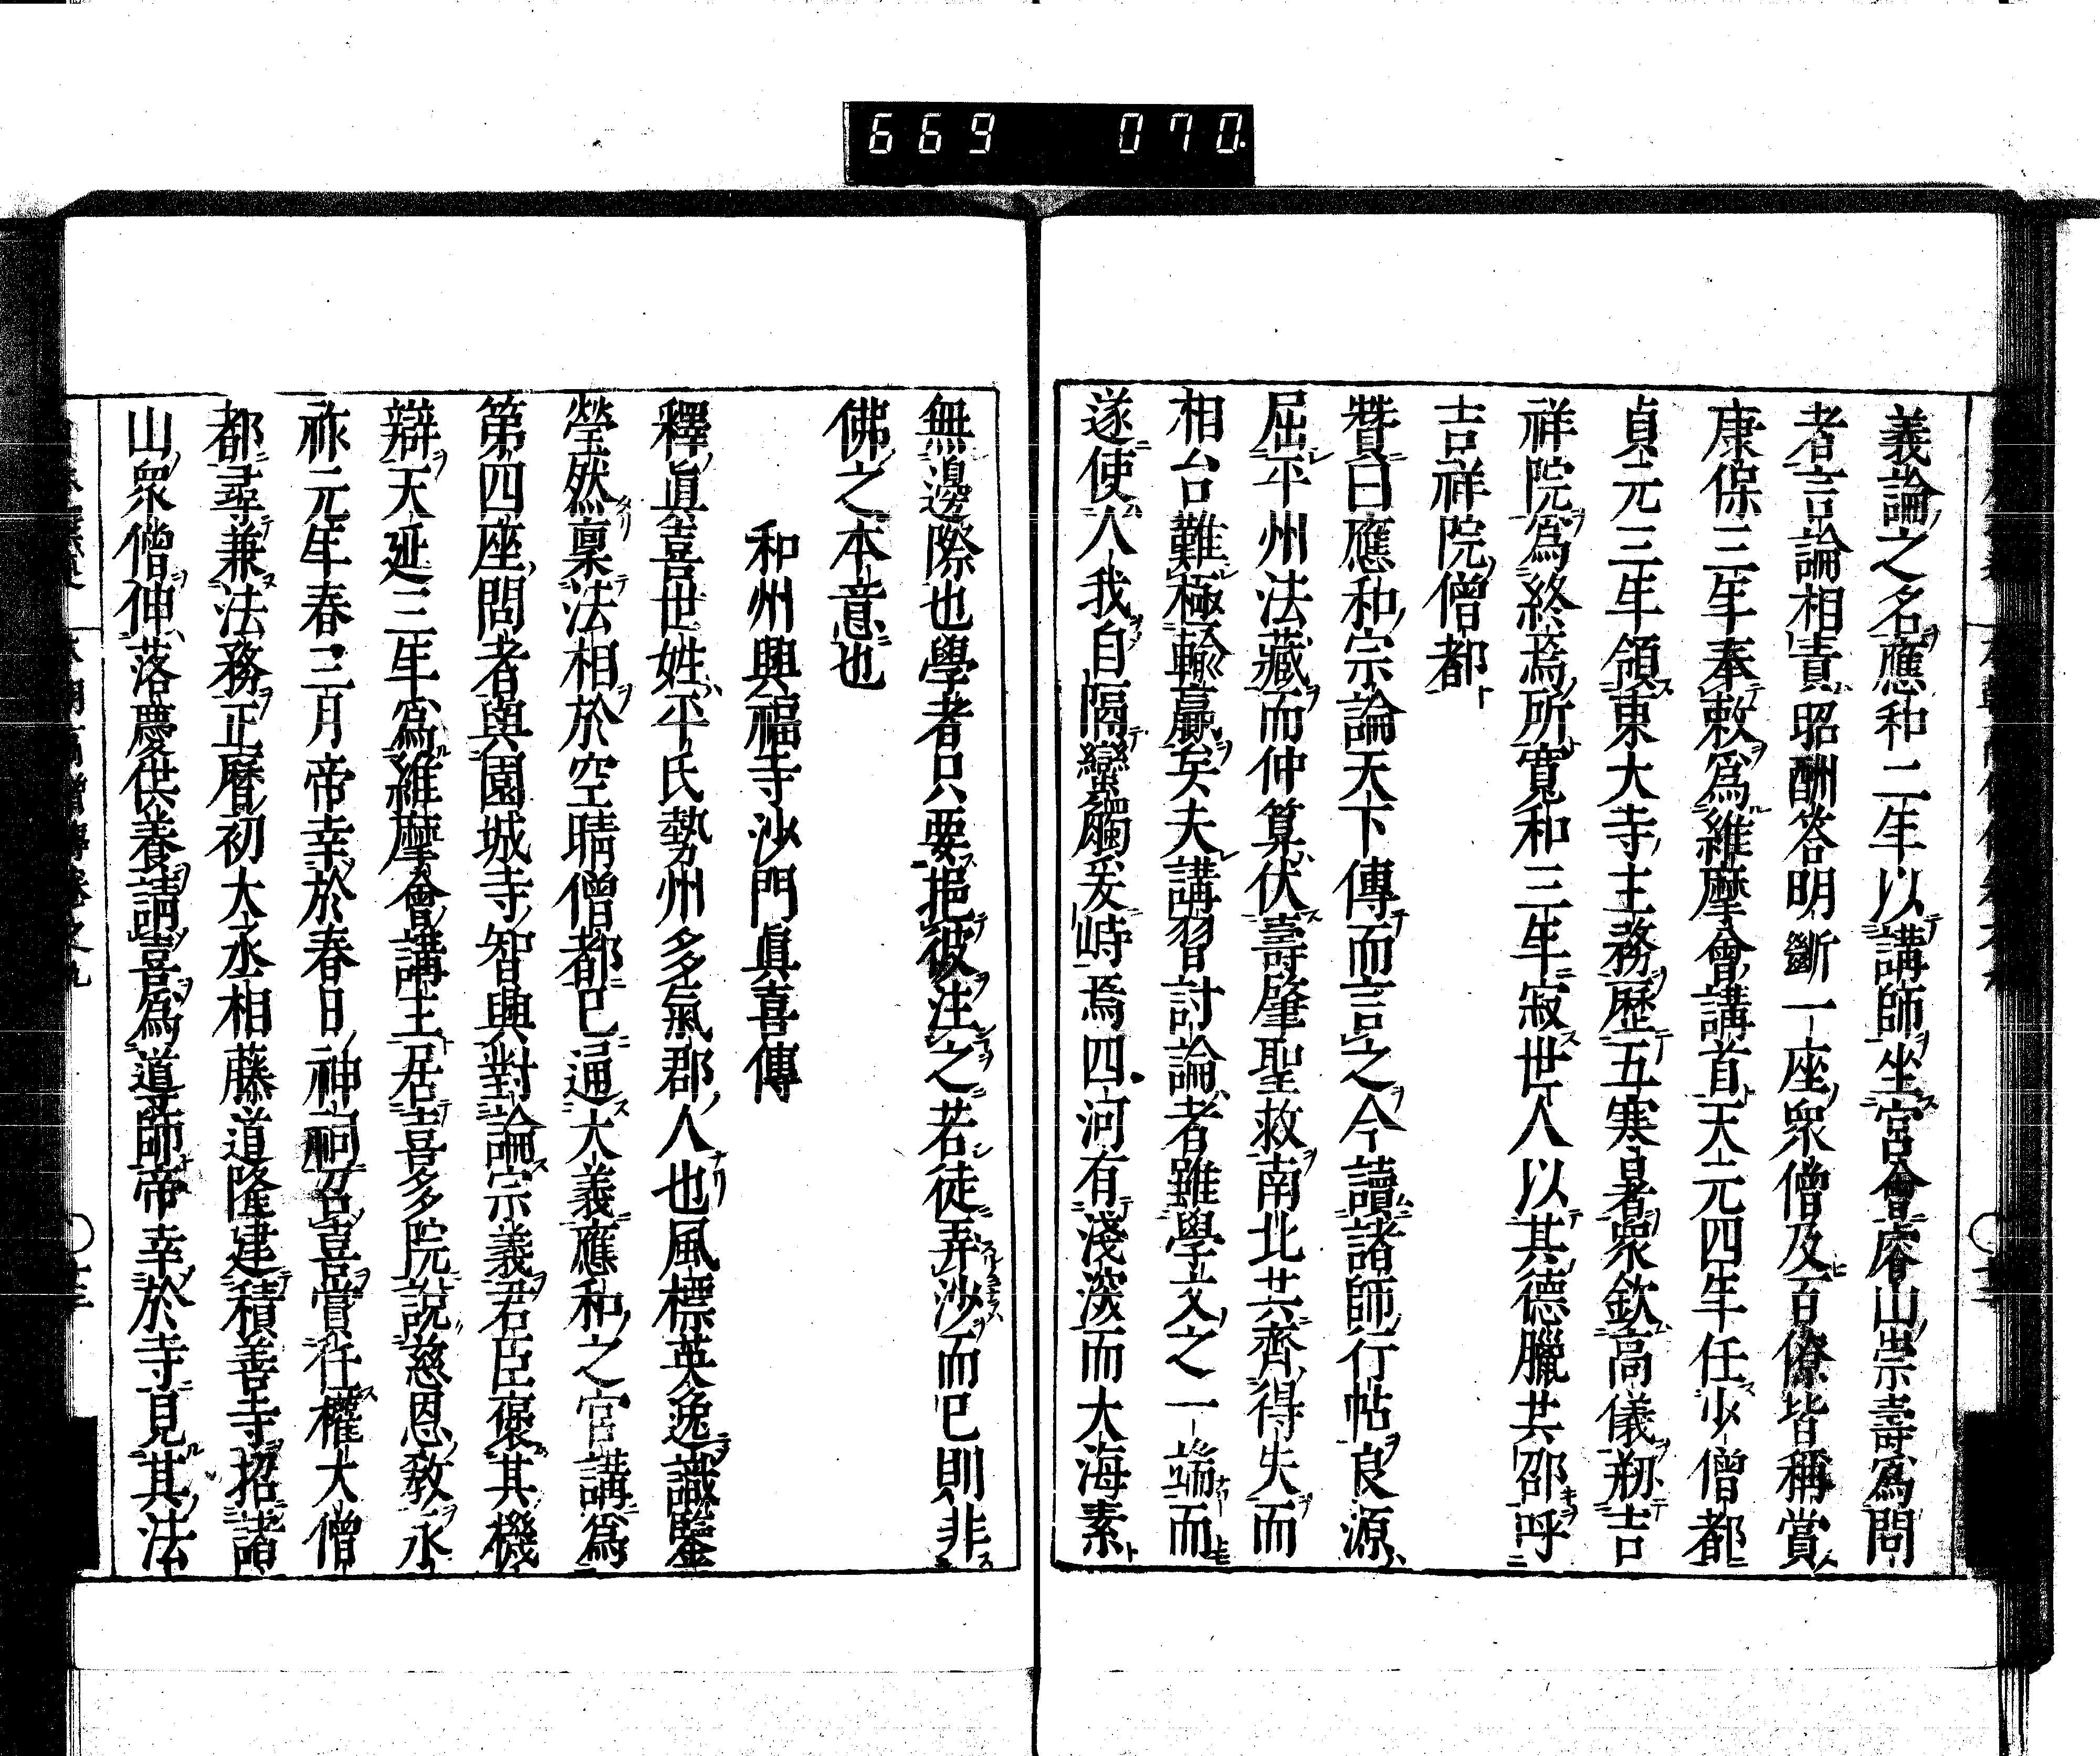 669 070
義論之名應和二年以講師坐宮會睿山崇壽爲問
者言論相責昭酬答明斷一座衆僧及百僚皆稱賞
康保三年奉敕爲維摩會講首天元四年任少僧都
貞元三年領東大寺主務歷五寒暑衆欽高儀剏吉
祥院爲終焉所寬和三年寂世人以其德臘共邵呼
吉祥院僧都
贊曰應和宗論天下傳而言之今讀諸師行帖良源
屈平州法藏而仲算伏壽肇聖救南北共齊得失而
相台難極輸贏矣夫講習討論者雖學文之一端而
遂使人我自隔蠻觸爰峙焉四河有淺深而大海素
無邊際也學者只要挹彼注之若徒弄沙而已則非
佛之本意也
和州興福寺沙門眞喜傳
釋眞喜世姓平氏勢州多氣郡人也風標英逸識鑒
瑩然稟法相於空晴僧都已通大義應和之官講爲
第四座問者與園城寺智興對論宗義君臣褒其機
辯天延三年爲維摩會講主居喜多院說慈恩敎永
祚元年春三月帝幸於春日神祠召喜賞任權大僧
都尋兼法務正曆初大丞相藤道隆建積善寺招諸
山衆僧伸落慶供養請喜爲道師帝幸於寺見其法